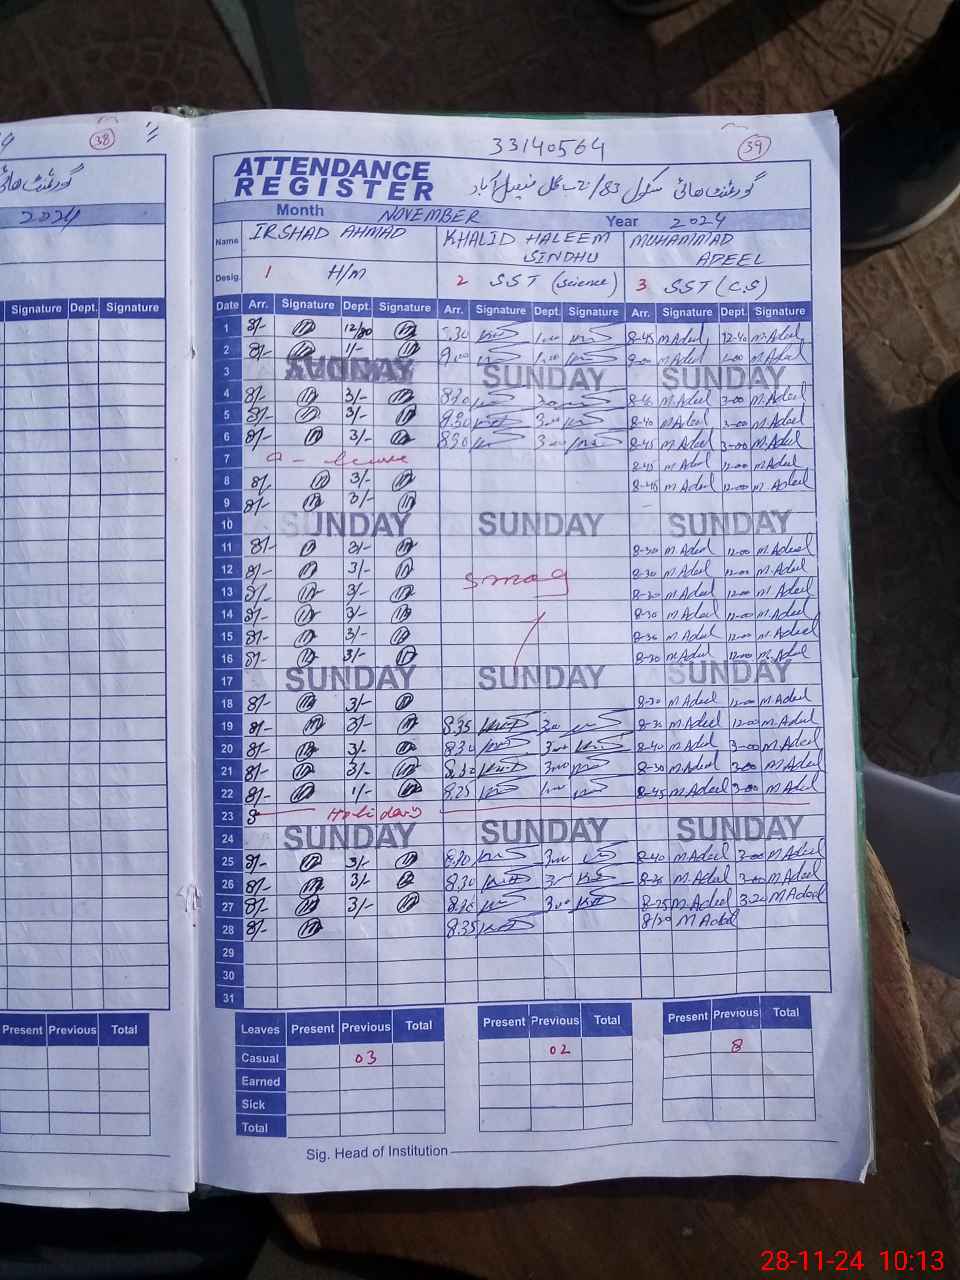 38
39
33140564
ATTENDANCE
REGISTER
گورنمنٹ ھائی سکول 83/
گورنمنٹ ھائی
Month NOVEMBER Year 2024
2024
Name IRSHAD AHMAD KHALID HALEEM SINDHU MUHAMMAD ADEEL
Desig. 1 H/M 2 SST (Science) 3 SST (C.S)
Signature Dept. Signature
Date Arr. Signature Dept. Signature Arr. Signature Dept. Signature Arr. Signature Dept. Signature
1 8/- 12/30 8.30 1.00 8-45 M.Adeel 12-40 M.Adeel
2 8/- 1/- 9.00 1.00 9-00 M.Adeel 1-00 M.Adeel
3 SUNDAY SUNDAY SUNDAY
4 8/- 3/- 8.30 3.00 M.Adeel 3-00 M.Adeel
5 8/- 3/- 8.30 3.00 8-40 M.Adeel 3-00 M.Adeel
6 8/- 3/- 8.30 3.00 8-45 M.Adeel 3-00 M.Adeel
7 leave 8-45 M.Adeel 12-00 M.Adeel
8 8/- 3/- 8-45 M.Adeel 12-00 M.Adeel
9 8/- 3/-
10 SUNDAY SUNDAY SUNDAY
11 8/- 3/- 8-30 M.Adeel 12-00 M.Adeel
12 8/- 3/- Smog 8-30 M.Adeel 12-00 M.Adeel
13 8/- 3/- 8-30 M.Adeel 12-00 M.Adeel
14 8/- 3/- 8-30 M.Adeel 12-00 M.Adeel
15 8/- 3/- 8-30 M.Adeel 12-00 M.Adeel
16 8/- 3/- 8-30 M.Adeel 12-00 M.Adeel
17 SUNDAY SUNDAY SUNDAY
18 8/- 3/- 8-30 M.Adeel 12-00 M.Adeel
19 8/- 3/- 8.35 3.00 8-30 M.Adeel 12-00 M.Adeel
20 8/- 3/- 8.30 3.00 8-40 M.Adeel 3-00 M.Adeel
21 8/- 3/- 8.30 3.00 8-30 M.Adeel 3-00 M.Adeel
22 8/- 1/- 8.25 8-45 M.Adeel 3-00 M.Adeel
23 Holiday
24 SUNDAY SUNDAY SUNDAY
25 8/- 3/- 8.30 3.00 8-40 M.Adeel 3-00 M.Adeel
26 8/- 3/- 8.30 M.Adeel 3-00 M.Adeel
27 8/- 3/- 3.00 8-25 M.Adeel 3-20 M.Adeel
28 8/- 8.35 8/30 M.Adeel
29
30
31
Present Previous Total
Leaves Present Previous Total Present Previous Total Present Previous Total
Casual 03 02 8
Earned
Sick
Total
Sig. Head of Institution
28-11-24 10:13